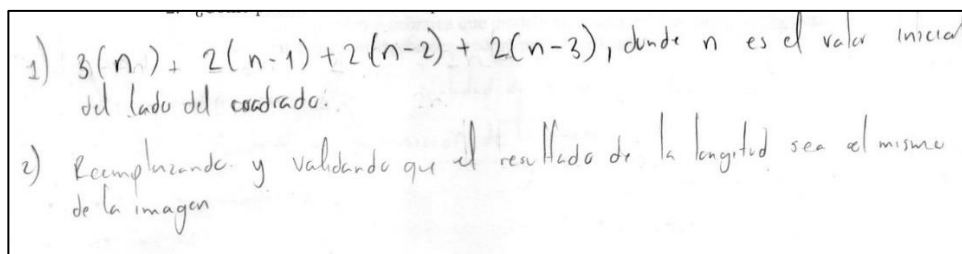 1) 3(n) + 2(n-1) + 2(n-2) + 2(n-3), donde n es el valor inicial
del lado del cuadrado.
2) Reemplazando y validando que el resultado de la longitud sea el mismo
de la imagen